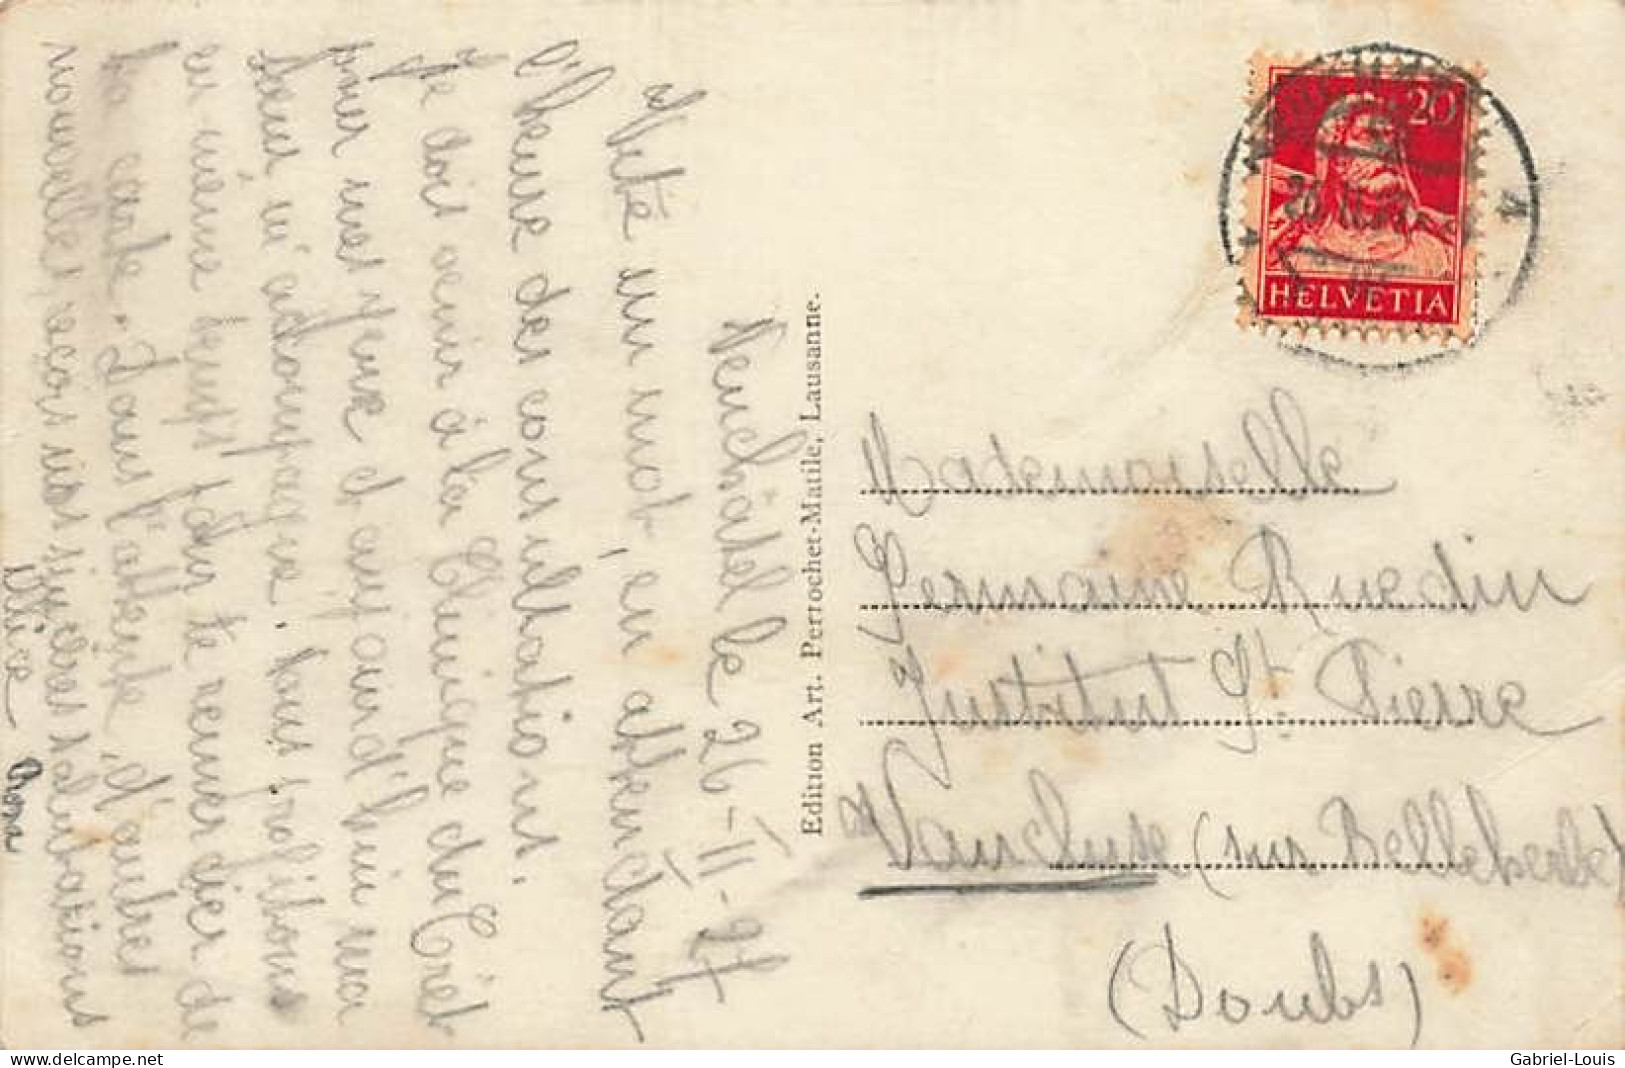 Neuchâtel le 26-II-27
Vite un mot, en attendant
l'heure des consultations.
Je dois venir à la Clinique du Crêt
pour mes yeux et aujourd'hui ma
sœur m'accompagne. Nous profitons
en même temps pour te remercier de
ta carte. Dans l'attente d'autres
nouvelles, reçois nos sincères salutations
Alice Rosa
Edition Art. Perrochet-Matile, Lausanne.
20
HELVETIA
26.II.27
Mademoiselle
Germaine Ruedin
Institut St. Pierre
Vaucluse (sur Belleherbe)
(Doubs)
Gabriel-Louis
delcampe.net